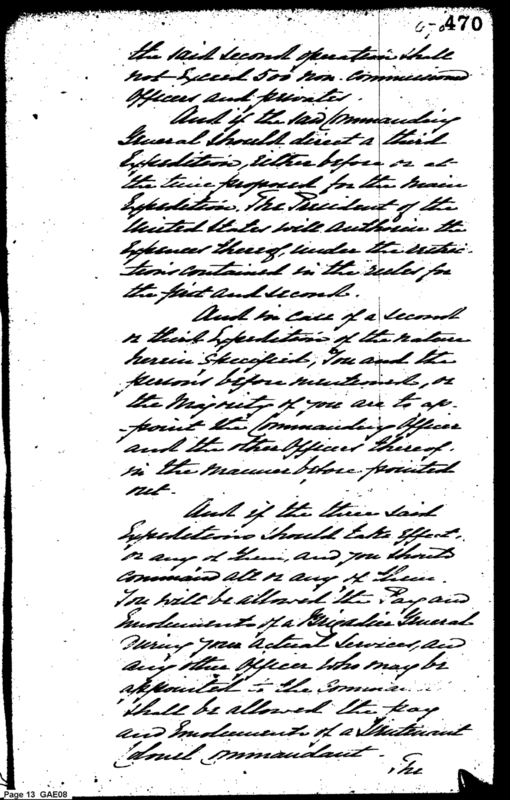 470
the said second operation shall
not Exceed 500 non-commissioned
Officers and privates.
And if the said Commanding
General Should direct a third
Expedition, Either before or at
the time proposed for the main
Expedition, The President of the
United States will Authorise the
Expences thereof, under the restric-
tions contained in the rules for
the first and second.
And in case of a second
or third Expedition of the nature
herein Specified, You and the
persons before mentioned, or
the Majority of you are to ap-
point the Commanding Officer
and the other Officers thereof
in the manner before pointed
out.
And if the three said
Expeditions Should take effect,
or any of them, and you should
command all or any of them.
You will be allowed the Pay and
Emoluments of a Brigadier General
During your actual Services, and
any other Officer who may be
appointed to the Command
Shall be allowed the pay
and Emoluments of a Lieutenant
Colonel Commandant.
The
Page 13 GAE08